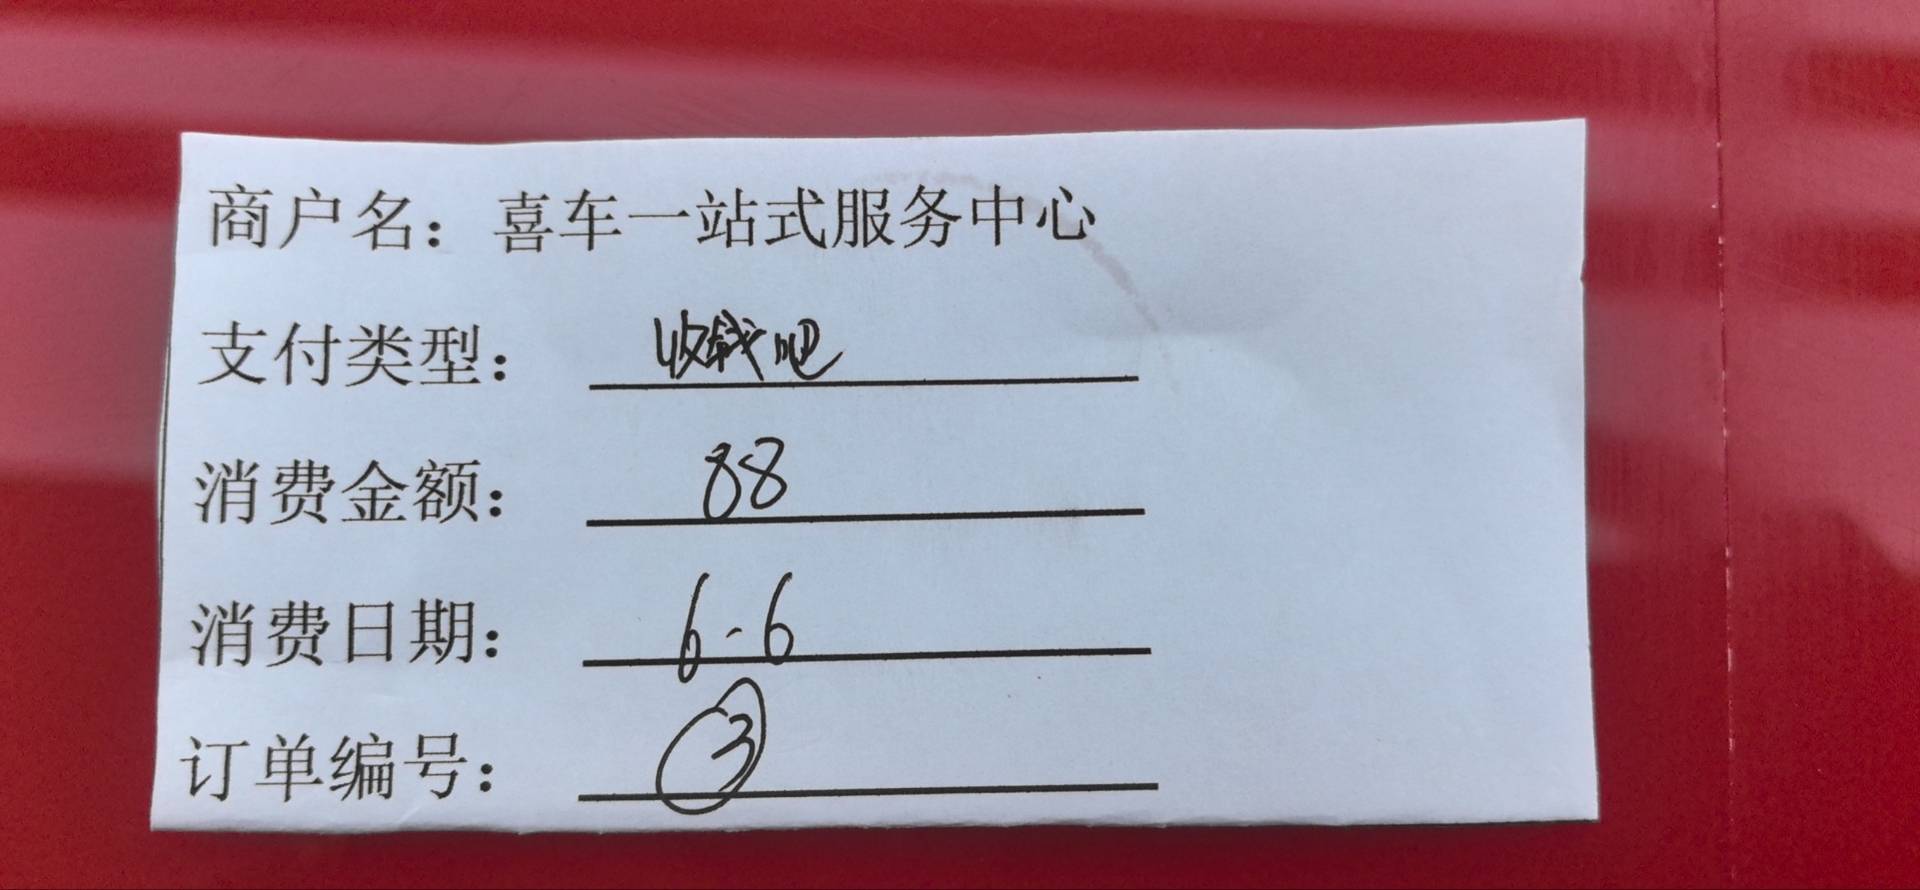 商户名：喜车一站式服务中心
支付类型：收钱吧
消费金额：88
消费日期：6-6
订单编号：③